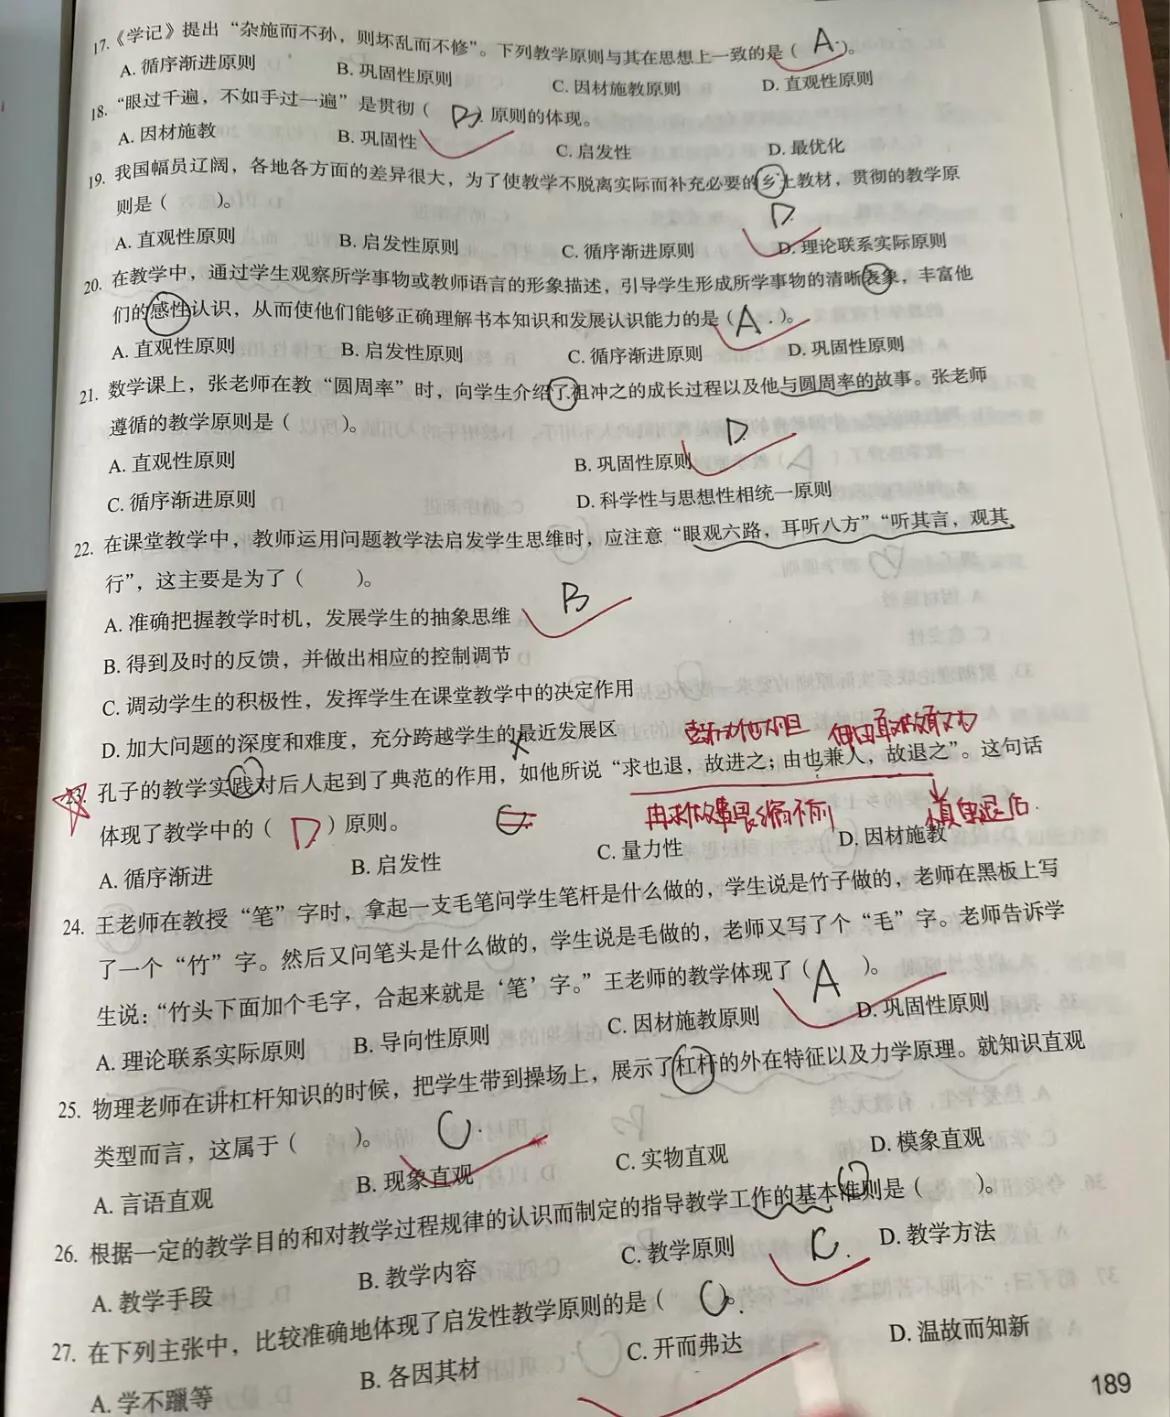 17.《学记》提出“杂施而不孙，则坏乱而不修”。下列教学原则与其在思想上一致的是（ A. ）。
A. 循序渐进原则 B. 巩固性原则 C. 因材施教原则 D. 直观性原则
18. “眼过千遍，不如手过一遍”是贯彻（ B ）原则的体现。
A. 因材施教 B. 巩固性 C. 启发性 D. 最优化
19. 我国幅员辽阔，各地各方面的差异很大，为了使教学不脱离实际而补充必要的乡土教材，贯彻的教学原
则是（ ）。 D
A. 直观性原则 B. 启发性原则 C. 循序渐进原则 D. 理论联系实际原则
20. 在教学中，通过学生观察所学事物或教师语言的形象描述，引导学生形成所学事物的清晰表象，丰富他
们的感性认识，从而使他们能够正确理解书本知识和发展认识能力的是（ A ）。
A. 直观性原则 B. 启发性原则 C. 循序渐进原则 D. 巩固性原则
21. 数学课上，张老师在教“圆周率”时，向学生介绍了祖冲之的成长过程以及他与圆周率的故事。张老师
遵循的教学原则是（ ）。 D
A. 直观性原则 B. 巩固性原则
C. 循序渐进原则 D. 科学性与思想性相统一原则
22. 在课堂教学中，教师运用问题教学法启发学生思维时，应注意“眼观六路，耳听八方”“听其言，观其
行”，这主要是为了（ ）。 B
A. 准确把握教学时机，发展学生的抽象思维
B. 得到及时的反馈，并做出相应的控制调节
C. 调动学生的积极性，发挥学生在课堂教学中的决定作用
D. 加大问题的深度和难度，充分跨越学生的最近发展区
23. 孔子的教学实践对后人起到了典范的作用，如他所说“求也退，故进之；由也兼人，故退之”。这句话
体现了教学中的（ D ）原则。 C 冉求做事畏缩不前
A. 循序渐进 B. 启发性 C. 量力性 D. 因材施教
24. 王老师在教授“笔”字时，拿起一支毛笔问学生笔杆是什么做的，学生说是竹子做的，老师在黑板上写
了一个“竹”字。然后又问笔头是什么做的，学生说是毛做的，老师又写了个“毛”字。老师告诉学
生说：“竹头下面加个毛字，合起来就是‘笔’字。”王老师的教学体现了（ A ）。
A. 理论联系实际原则 B. 导向性原则 C. 因材施教原则 D. 巩固性原则
25. 物理老师在讲杠杆知识的时候，把学生带到操场上，展示了杠杆的外在特征以及力学原理。就知识直观
类型而言，这属于（ ）。 C.
A. 言语直观 B. 现象直观 C. 实物直观 D. 模象直观
26. 根据一定的教学目的和对教学过程规律的认识而制定的指导教学工作的基本准则是（ ）。
A. 教学手段 B. 教学内容 C. 教学原则 C. D. 教学方法
27. 在下列主张中，比较准确地体现了启发性教学原则的是（ C ）。
A. 学不躐等 B. 各因其材 C. 开而弗达 D. 温故而知新
189